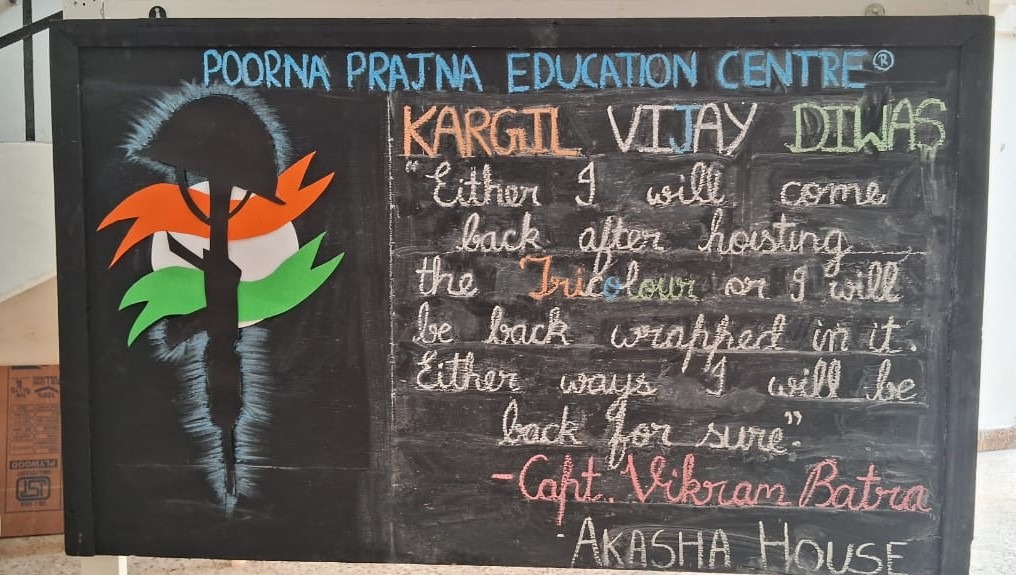 POORNA PRAJNA EDUCATION CENTRE®
KARGIL VIJAY DIWAS
"Either I will come
back after hoisting
the Tricolour or I will
be back wrapped in it.
Either ways I will be
back for sure".
-Capt. Vikram Batra
AKASHA HOUSE
PLYWOOD